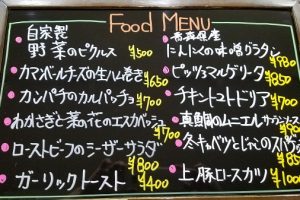 Food MENU
自家製
野菜のピクルス ¥500
カマンベールチーズの生ハム巻き ¥650
カンパチのカルパッチョ ¥700
わかさぎと菜の花のエスカベッシュ ¥700
ローストビーフのシーザーサラダ ¥800
ガーリックトースト ¥400
青森県産
にんにくの味噌グラタン ¥780
ピッツァマルゲリータ ¥850
チキントマトドリア ¥700
真鯛のムニエル
冬キャベツと
上豚ロースカツ